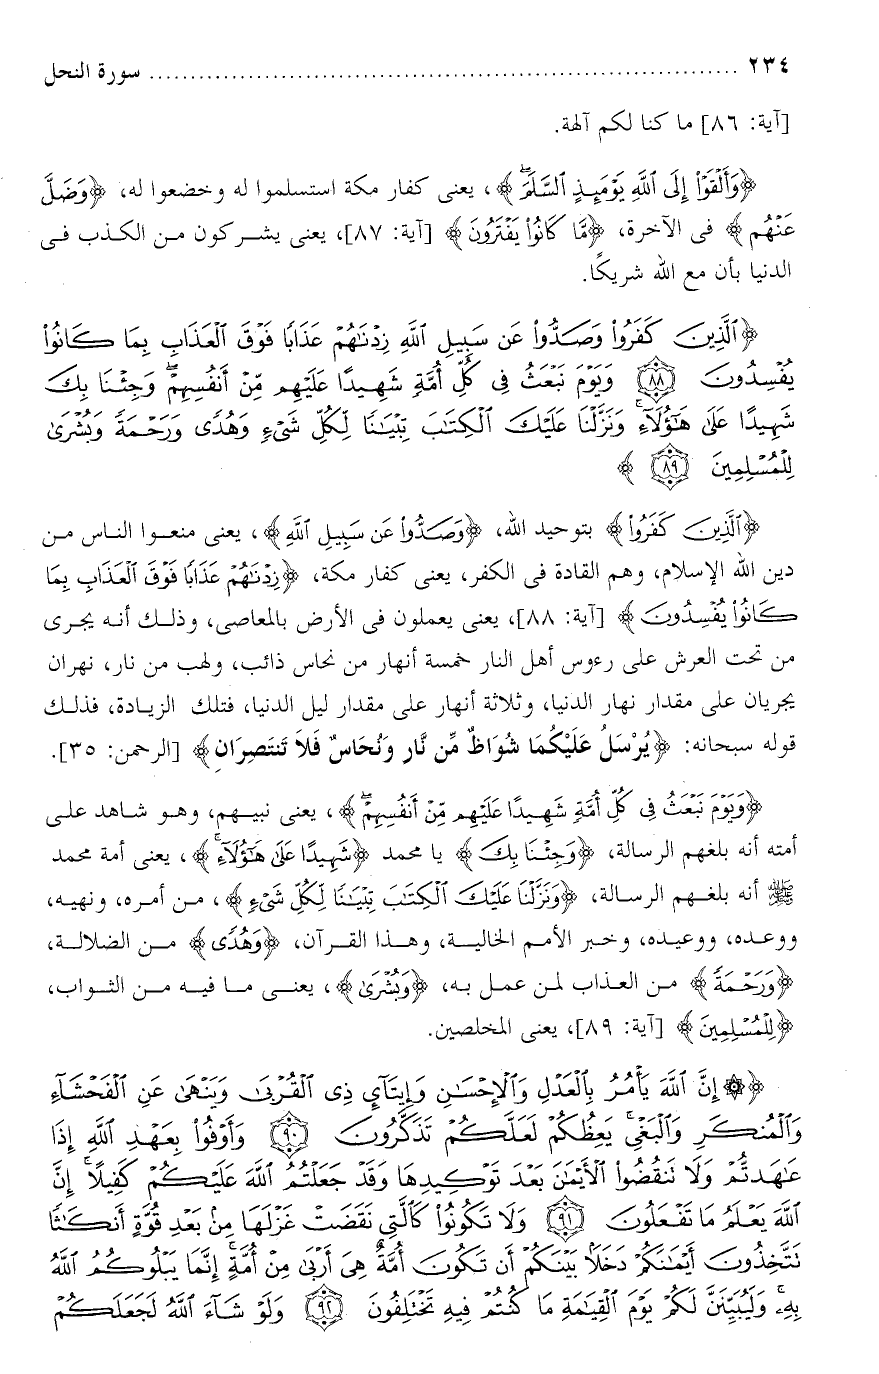 ٢٣٤ ........................................................................ سورة النحل
[آية: ٨٦] ما كنا لكم آلهة.
﴿وَأَلْقَوْا۟ إِلَى ٱللَّهِ يَوْمَئِذٍ ٱلسَّلَمَ ۖ﴾، يعنى كفار مكة استسلموا له وخضعوا له، ﴿وَضَلَّ
عَنْهُم﴾ فى الآخرة، ﴿مَّا كَانُوا۟ يَفْتَرُونَ﴾ [آية: ٨٧]، يعنى يشركون من الكذب فى
الدنيا بأن مع الله شريكًا.
﴿ٱلَّذِينَ كَفَرُوا۟ وَصَدُّوا۟ عَن سَبِيلِ ٱللَّهِ زِدْنَٰهُمْ عَذَابًا فَوْقَ ٱلْعَذَابِ بِمَا كَانُوا۟
يُفْسِدُونَ ﴿٨٨﴾ وَيَوْمَ نَبْعَثُ فِى كُلِّ أُمَّةٍ شَهِيدًا عَلَيْهِم مِّنْ أَنفُسِهِمْ ۖ وَجِئْنَا بِكَ
شَهِيدًا عَلَىٰ هَٰٓؤُلَآءِ ۚ وَنَزَّلْنَا عَلَيْكَ ٱلْكِتَٰبَ تِبْيَٰنًا لِّكُلِّ شَىْءٍ وَهُدًى وَرَحْمَةً وَبُشْرَىٰ
لِلْمُسْلِمِينَ ﴿٨٩﴾﴾
﴿ٱلَّذِينَ كَفَرُوا۟﴾ بتوحيد الله، ﴿وَصَدُّوا۟ عَن سَبِيلِ ٱللَّهِ﴾، يعنى منعوا الناس من
دين الله الإسلام، وهم القادة فى الكفر، يعنى كفار مكة، ﴿زِدْنَٰهُمْ عَذَابًا فَوْقَ ٱلْعَذَابِ بِمَا
كَانُوا۟ يُفْسِدُونَ﴾ [آية: ٨٨]، يعنى يعملون فى الأرض بالمعاصى، وذلك أنه يجرى
من تحت العرش على رءوس أهل النار خمسة أنهار من نحاس ذائب، ولهب من نار، نهران
يجريان على مقدار نهار الدنيا، وثلاثة أنهار على مقدار ليل الدنيا، فتلك الزيادة، فذلك
قوله سبحانه: ﴿يُرْسَلُ عَلَيْكُمَا شُوَاظٌ مِّن نَّارٍ وَنُحَاسٌ فَلاَ تَنتَصِرَانِ﴾ [الرحمن: ٣٥].
﴿وَيَوْمَ نَبْعَثُ فِى كُلِّ أُمَّةٍ شَهِيدًا عَلَيْهِم مِّنْ أَنفُسِهِمْ ۖ﴾، يعنى نبيهم، وهو شاهد على
أمته أنه بلغهم الرسالة، ﴿وَجِئْنَا بِكَ﴾ يا محمد ﴿شَهِيدًا عَلَىٰ هَٰٓؤُلَآءِ ۚ﴾، يعنى أمة محمد
ﷺ أنه بلغهم الرسالة، ﴿وَنَزَّلْنَا عَلَيْكَ ٱلْكِتَٰبَ تِبْيَٰنًا لِّكُلِّ شَىْءٍ﴾، من أمره، ونهيه،
ووعده، ووعيده، وخبر الأمم الخالية، وهذا القرآن، ﴿وَهُدًى﴾ من الضلالة،
﴿وَرَحْمَةً﴾ من العذاب لمن عمل به، ﴿وَبُشْرَىٰ﴾، يعنى ما فيه من الثواب،
﴿لِلْمُسْلِمِينَ﴾ [آية: ٨٩]، يعنى المخلصين.
﴿۞ إِنَّ ٱللَّهَ يَأْمُرُ بِٱلْعَدْلِ وَٱلْإِحْسَٰنِ وَإِيتَآئِ ذِى ٱلْقُرْبَىٰ وَيَنْهَىٰ عَنِ ٱلْفَحْشَآءِ
وَٱلْمُنكَرِ وَٱلْبَغْىِ ۚ يَعِظُكُمْ لَعَلَّكُمْ تَذَكَّرُونَ ﴿٩٠﴾ وَأَوْفُوا۟ بِعَهْدِ ٱللَّهِ إِذَا
عَٰهَدتُّمْ وَلَا تَنقُضُوا۟ ٱلْأَيْمَٰنَ بَعْدَ تَوْكِيدِهَا وَقَدْ جَعَلْتُمُ ٱللَّهَ عَلَيْكُمْ كَفِيلًا ۚ إِنَّ
ٱللَّهَ يَعْلَمُ مَا تَفْعَلُونَ ﴿٩١﴾ وَلَا تَكُونُوا۟ كَٱلَّتِى نَقَضَتْ غَزْلَهَا مِنۢ بَعْدِ قُوَّةٍ أَنكَٰثًا
تَتَّخِذُونَ أَيْمَٰنَكُمْ دَخَلًۢا بَيْنَكُمْ أَن تَكُونَ أُمَّةٌ هِىَ أَرْبَىٰ مِنْ أُمَّةٍ ۚ إِنَّمَا يَبْلُوكُمُ ٱللَّهُ
بِهِۦ ۚ وَلَيُبَيِّنَنَّ لَكُمْ يَوْمَ ٱلْقِيَٰمَةِ مَا كُنتُمْ فِيهِ تَخْتَلِفُونَ ﴿٩٢﴾ وَلَوْ شَآءَ ٱللَّهُ لَجَعَلَكُمْ